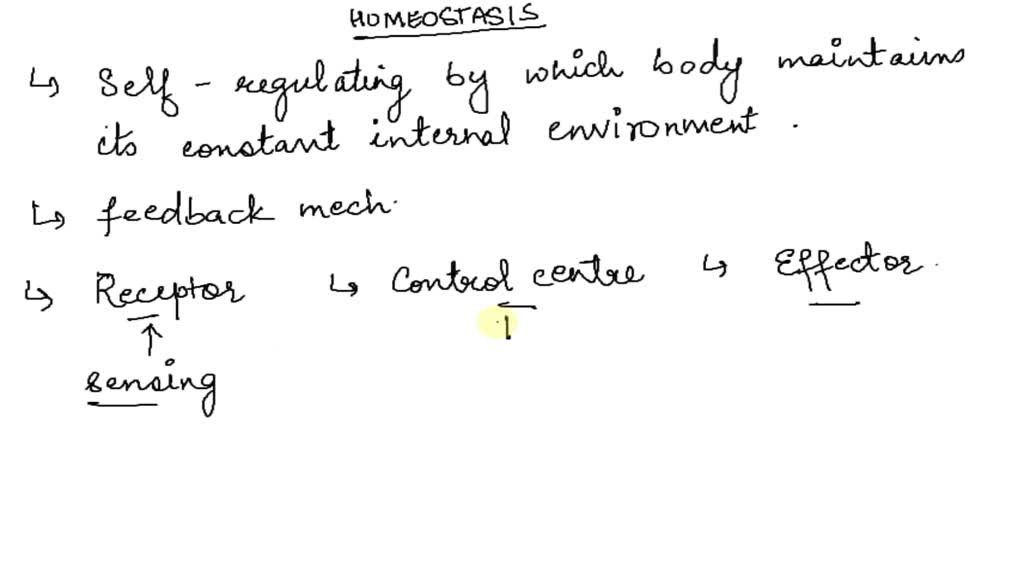 HOMEOSTASIS
↳ Self - regulating by which body maintains
its constant internal environment .
↳ feedback mech.
↳ Receptor ↳ Control centre ↳ Effector.
sensing